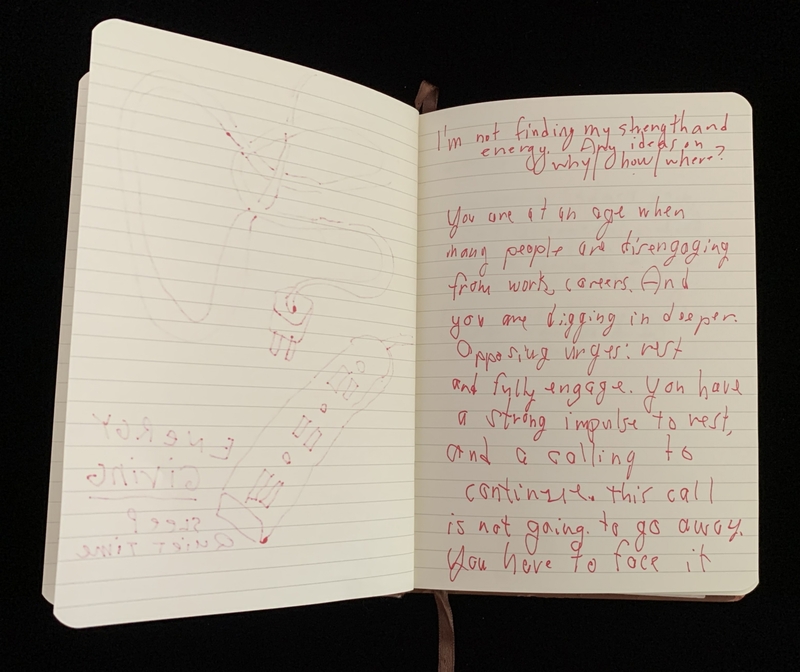 ENERGY
GIVING
SLEEP
QUIET TIME
I'm not finding my strength and
energy. Any ideas on
why/how/where?
You are at an age when
many people are disengaging
from work, careers. And
you are digging in deeper.
Opposing urges: rest
and fully engage. You have
a strong impulse to rest,
and a calling to
continue. This call
is not going to go away.
You have to face it